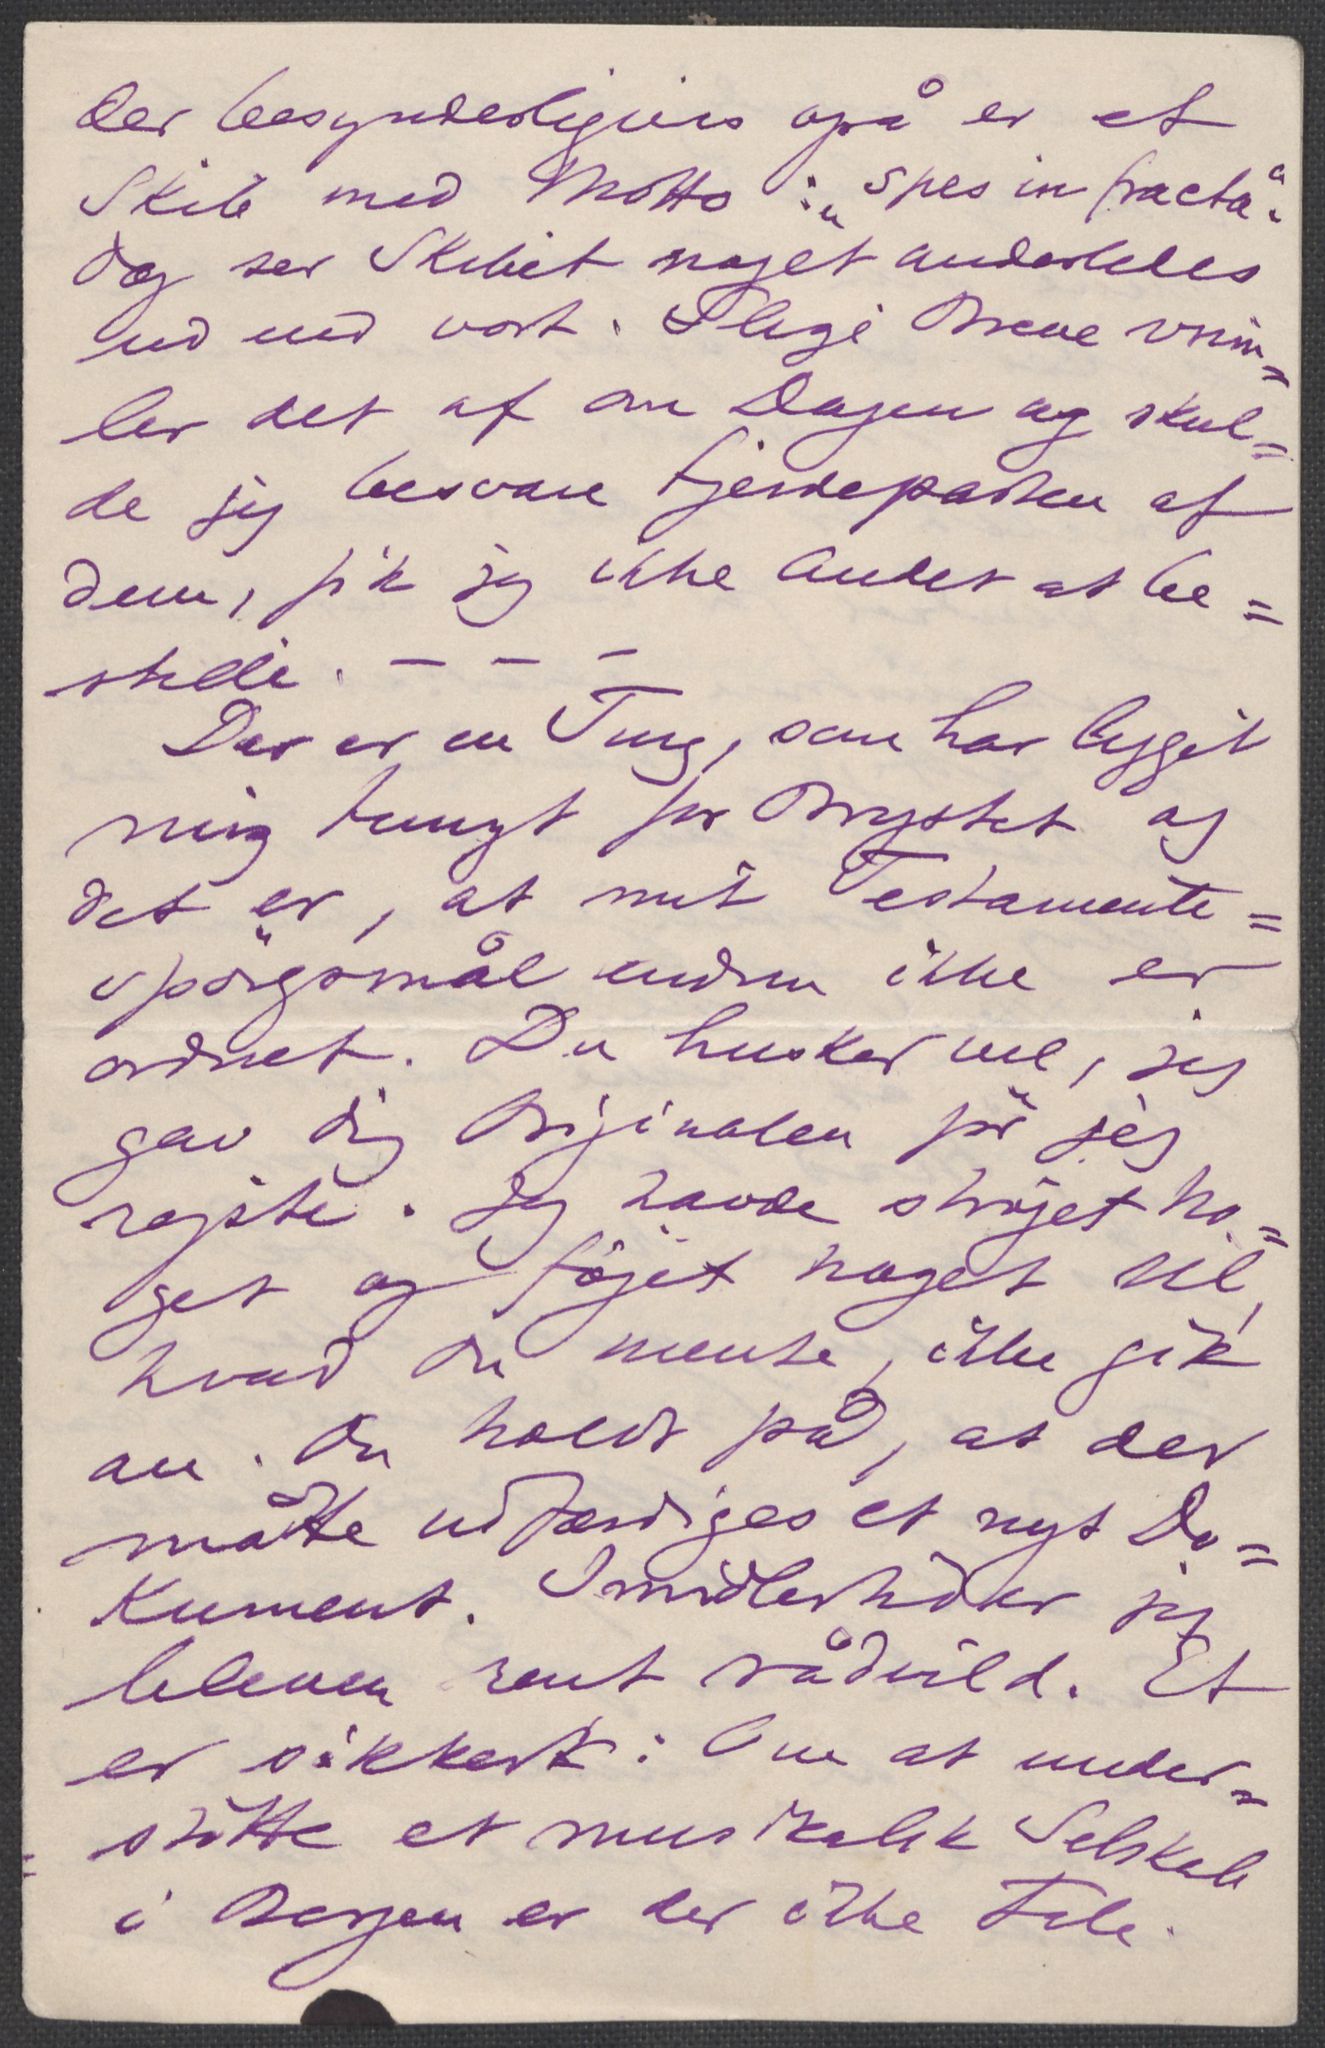 der besynderligvis også er et
Skib med Motto: „spes infracta“.
dog ser Skibet noget anderledes
ud end vort. Slige Breve vrim=
ler det af om Dagen og skul=
de jeg besvare Fjerdeparten af
dem, fik jeg ikke Andet at be=
stille. — — —
Der er en Ting, som har ligget
mig tungt for Brystet og
det er, at mit Testamente=
spörgsmål endnu ikke er
ordnet. Du husker vel, jeg
gav dig Originalen för jeg
rejste. Jeg havde ströjet no=
get og föjet noget til,
hvad Du mente, ikke gik
an. Du holdt på, at der
måtte udfærdiges et nyt Do=
kument. Imidlertid er jeg
bleven rent rådvild. Et
er sikkert: Om at under=
stötte et musikalsk Selskab
i Bergen er der ikke Tale.